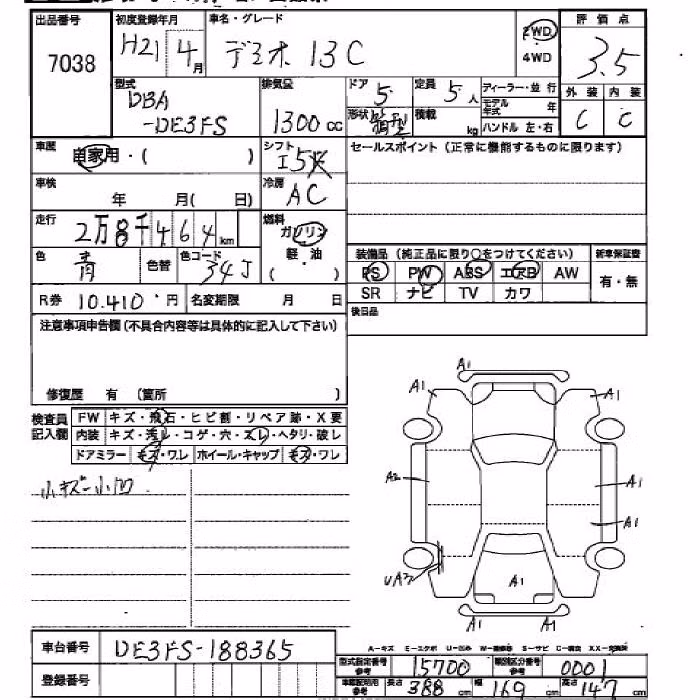 出品番号 初度登録年月 車名・グレード 評価点
7038 H21 4月 デミオ 13C 2WD 4WD 3.5
型式 排気量 ドア 定員 ディーラー・並行 外装 内装
DBA 5 5人 モデル年式 年 C C
-DE3FS 1300cc 形状 箱型 積載 kg ハンドル 左・右
車歴 自家用・( ) シフト I5 セールスポイント(正常に機能するものに限ります)
車検 年 月( 日) 冷房 AC
走行 2万8千464km 燃料 ガソリン
色 青 色替 色コード 34J 軽・油 ( ) 装備品(純正品に限り○をつけてください) 新車保証書
PS PW ABS エアB AW 有・無
R券 10.410円 名変期限 月 日 SR ナビ TV カワ
注意事項申告欄(不具合内容等は具体的に記入して下さい) 後日品
修復歴 有 (箇所 )
検査員記入欄 FW キズ・飛石・ヒビ割・リペア跡・X要
内装 キズ・汚レ・コゲ・穴・スレ・ヘタリ・破レ
ドアミラー キズ・ワレ ホイール・キャップ キズ・ワレ
小キズ 小凹
A1
A1 A1
A2 A1
A1
UA2
A1
A1 A1
A-キズ E-エクボ U-凹み W-補修跡 S-サビ C-腐食 XX-交換済
車台番号 DE3FS-188365 型式指定番号 参考 15700 類別区分番号 参考 0001
登録番号 長さ 388 cm 幅 169 cm 高さ 147 cm